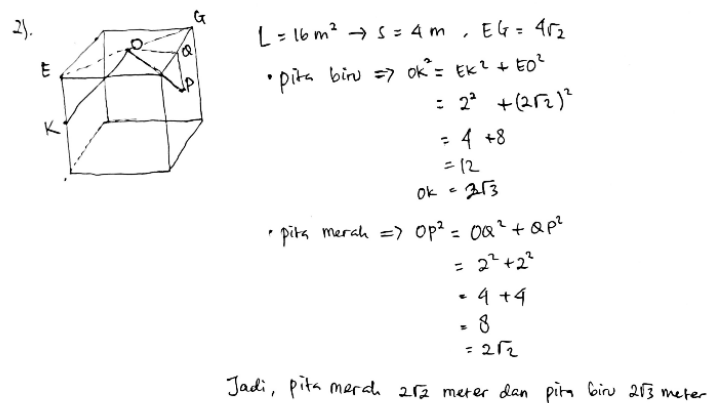 2).
G
O
Q
E
P
K
L = 16 m² → s = 4 m , EG = 4√2
• pita biru => OK² = EK² + EO²
= 2² + (2√2)²
= 4 + 8
= 12
OK = 2√3
• pita merah => OP² = OQ² + QP²
= 2² + 2²
= 4 + 4
= 8
= 2√2
Jadi, pita merah 2√2 meter dan pita biru 2√3 meter